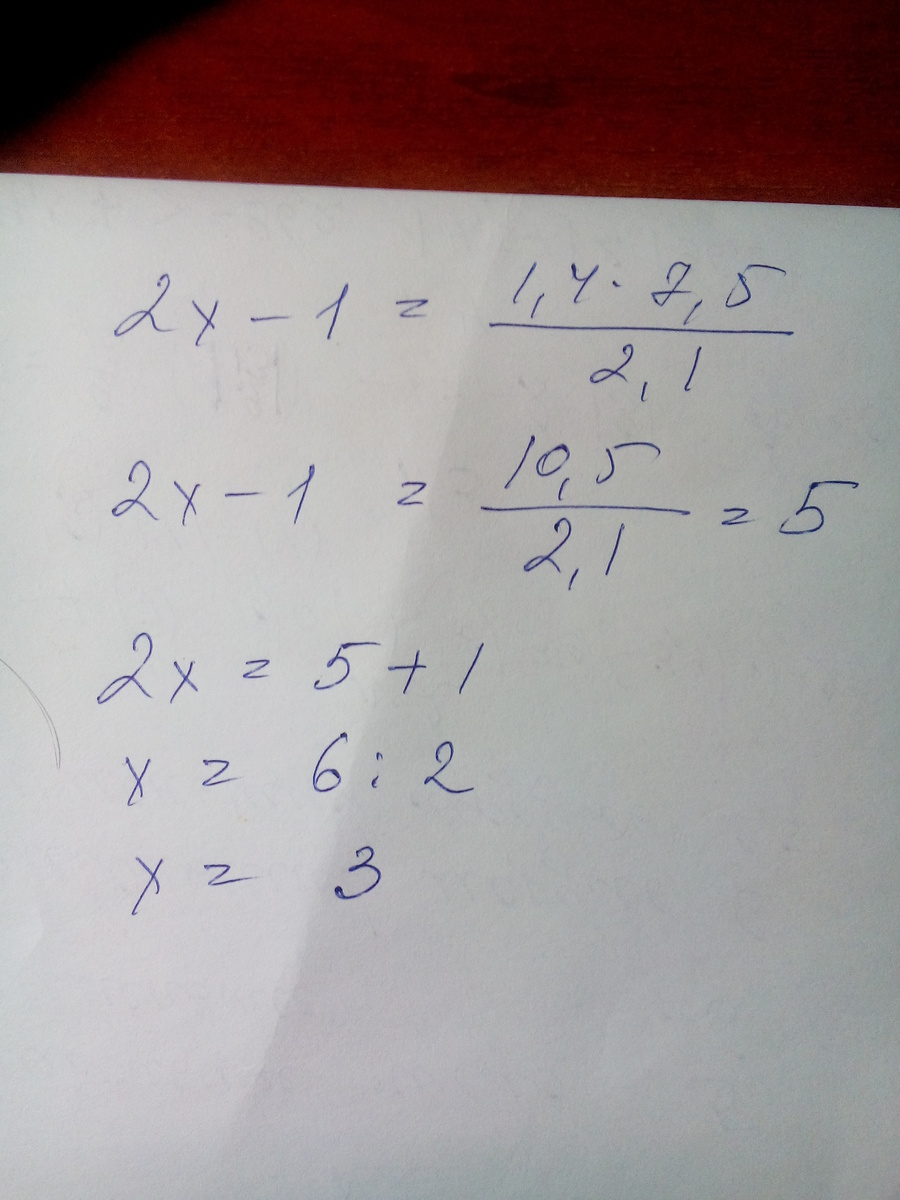 2x - 1 = \frac{1,4 · 7,5}{2,1}
2x - 1 = \frac{10,5}{2,1} = 5
2x = 5 + 1
x = 6 : 2
x = 3